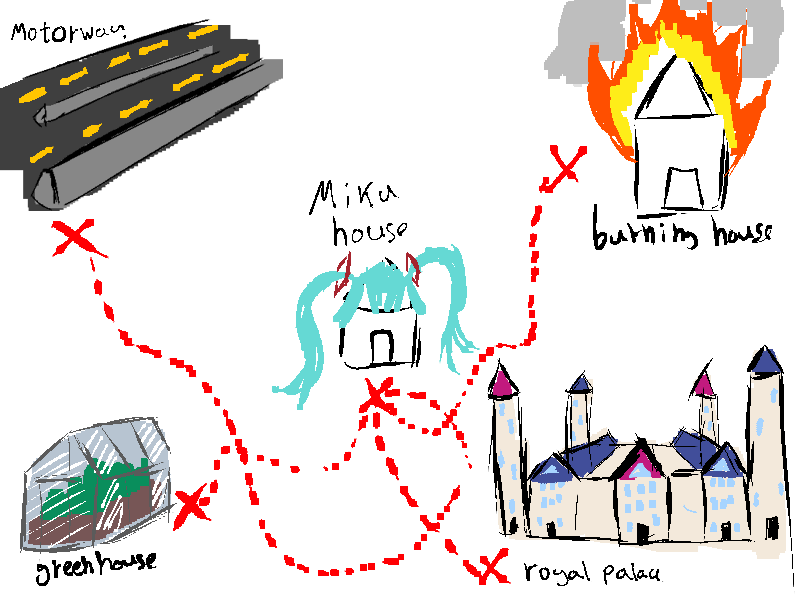 Motorway
Miku
house
burning house
greenhouse
royal palace